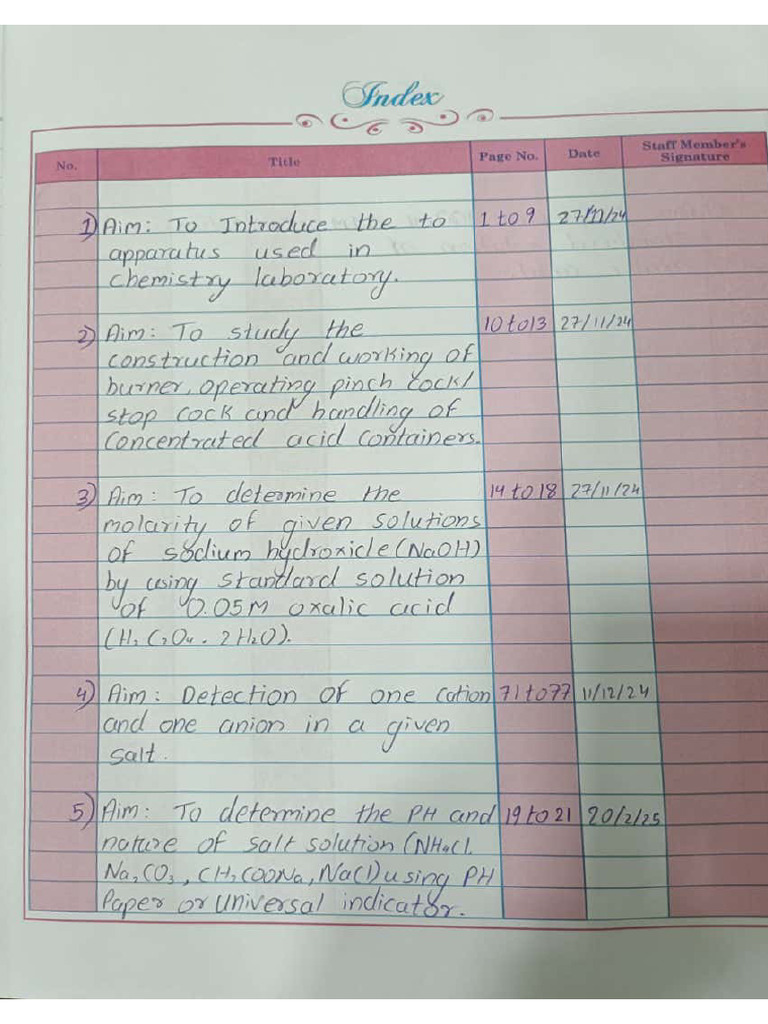 Index
No. Title Page No. Date Staff Member's Signature
1) Aim: To Introduce the to 1 to 9 27/11/24
apparatus used in
chemistry laboratory.
2) Aim: To study the 10 to 13 27/11/24
construction and working of
burner, operating pinch cock/
stop cock and handling of
concentrated acid containers.
3) Aim: To determine the 14 to 18 27/11/24
molarity of given solutions
of sodium hydroxide (NaOH)
by using standard solution
of 0.05M oxalic acid
(H2C2O4 . 2H2O).
4) Aim: Detection of one cation 71 to 77 11/12/24
and one anion in a given
salt.
5) Aim: To determine the PH and 19 to 21 20/2/25
nature of salt solution (NH4Cl,
Na2CO3, CH3COONa, NaCl) using PH
Paper or universal indicator.